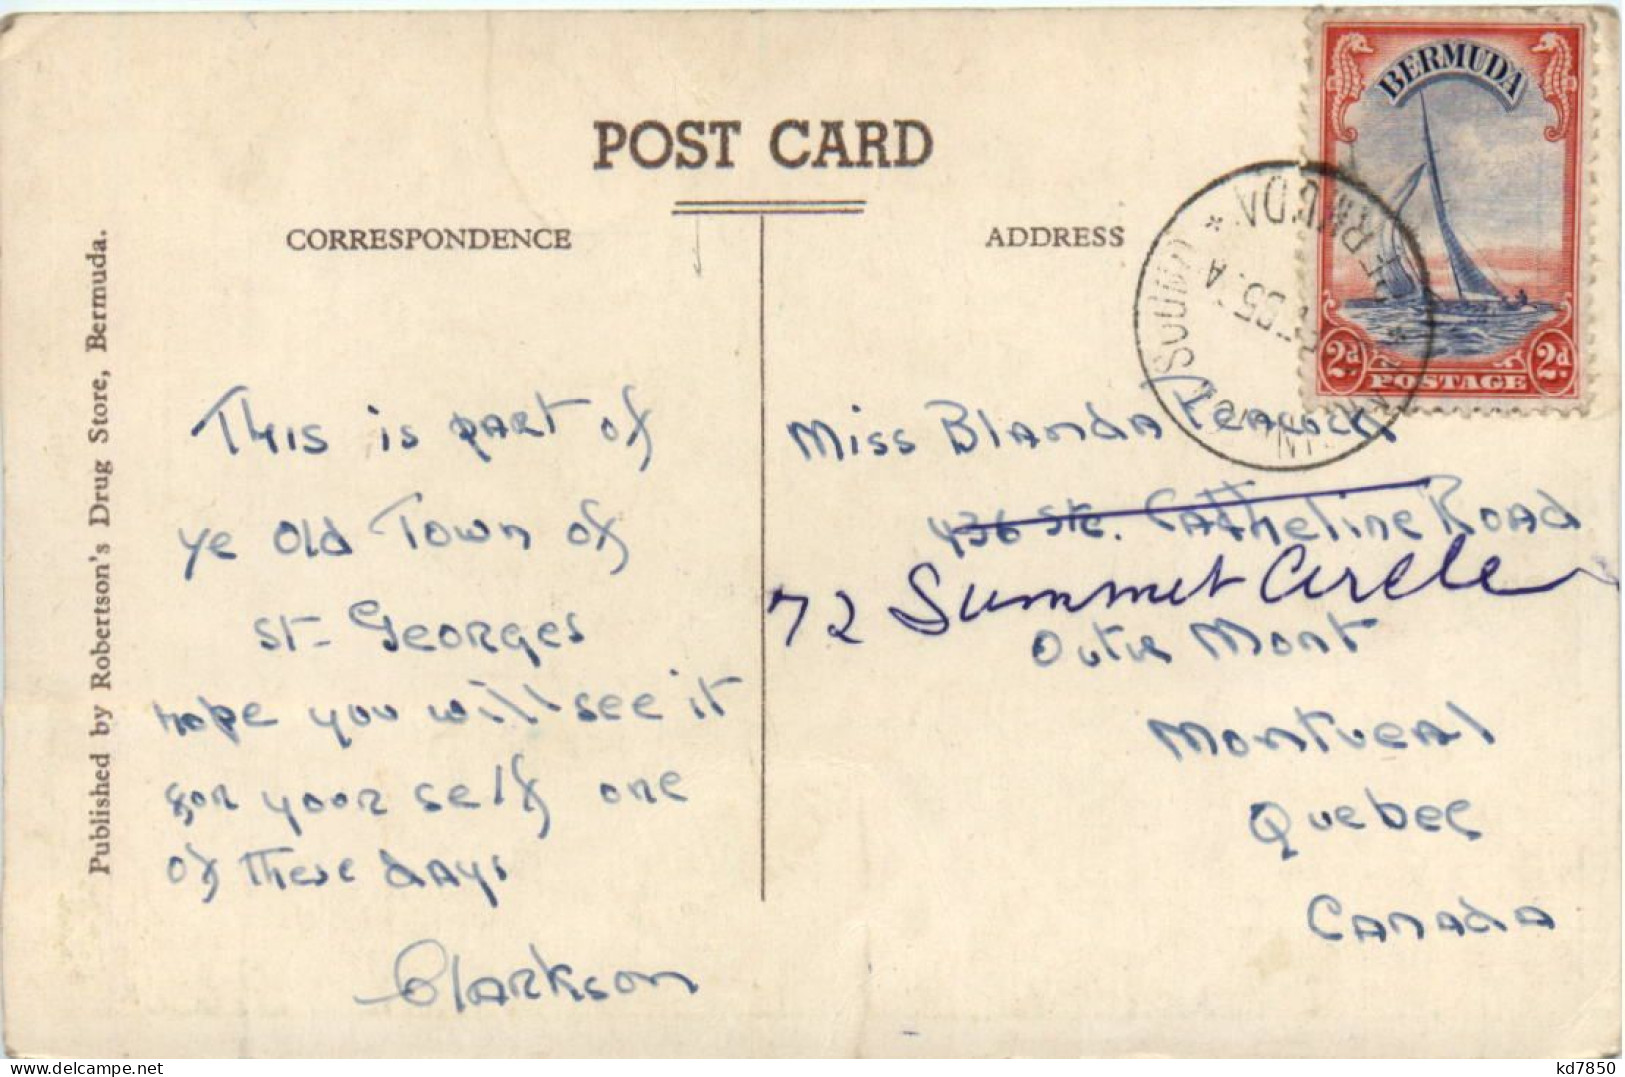 POST CARD
CORRESPONDENCE
ADDRESS
Published by Robertson's Drug Store, Bermuda.
BERMUDA
2d
POSTAGE
2d.
SOUND
* BERMUDA *
55
A
This is part of
ye Old Town of
St- Georges
hope you will see it
for your self one
of these days
Clarkson
Miss Blanda Peacock
436 Ste. Catherine Road
72 Summit Circle
Outre Mont
Montreal
Quebec
Canada
www.delcampe.net
kd7850